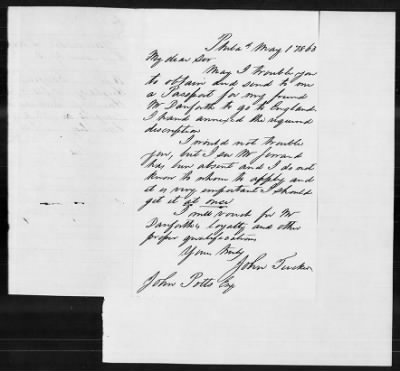 Philada May 1 1863
My dear Sir
May I trouble you
to obtain and send to me
a Passport for my friend
Mr Danforth to go to England
I hand annexed the required
description
I would not trouble
you, but I see Mr
has been absent and I do not
know to whom to apply and
it is very important I should
get it at once
I will vouch for Mr
Danforths loyalty and other
proper qualifications
Yours truly
John Tucker
John Potts Esq